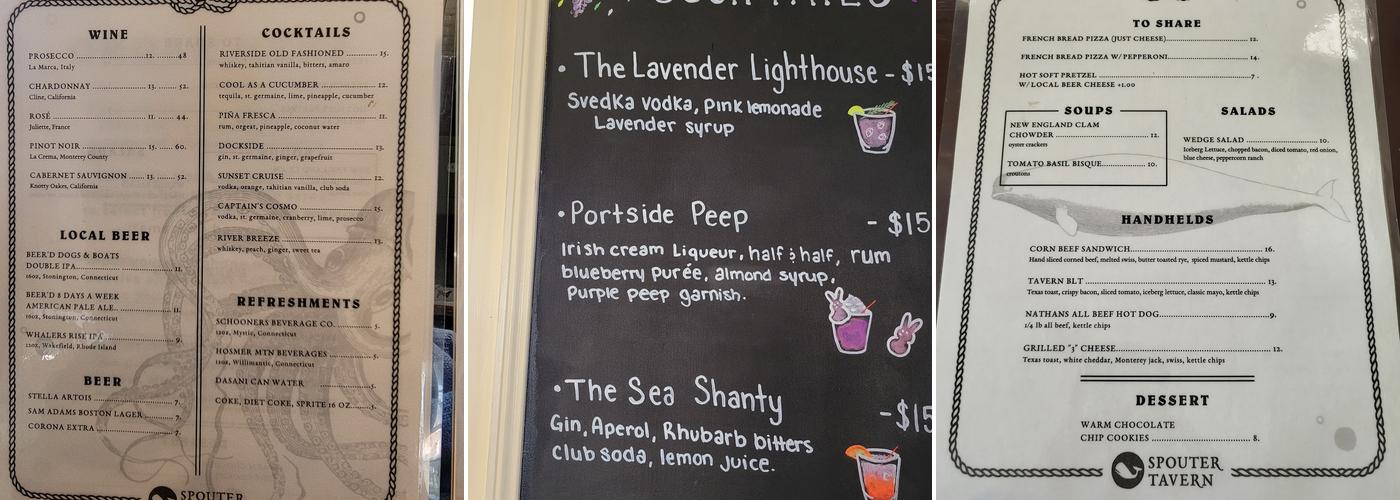 WINE
PROSECCO ........................12. ........48
La Marca, Italy
CHARDONNAY ................... 13. ...... 52.
Cline, California
ROSÉ ................................ 11. ...... 44.
Juliette, France
PINOT NOIR ...................... 15. ..... 60.
La Crema, Monterey County
CABERNET SAUVIGNON ...... 13. ..... 52.
Knotty Oakes, California
LOCAL BEER
BEER'D DOGS & BOATS
DOUBLE IPA................................. 11.
16oz, Stonington, Connecticut
BEER'D 8 DAYS A WEEK
AMERICAN PALE ALE.................. 11.
16oz, Stonington, Connecticut
WHALERS RISE IPA ...................... 9.
12oz, Wakefield, Rhode Island
BEER
STELLA ARTOIS ........................... 7.
SAM ADAMS BOSTON LAGER ......... 7.
CORONA EXTRA .......................... 7.
COCKTAILS
RIVERSIDE OLD FASHIONED ............ 15.
whiskey, tahitian vanilla, bitters, amaro
COOL AS A CUCUMBER .................. 12.
tequila, st. germaine, lime, pineapple, cucumber
PIÑA FRESCA ............................... 11.
rum, orgeat, pineapple, coconut water
DOCKSIDE ................................... 13.
gin, st. germaine, ginger, grapefruit
SUNSET CRUISE ........................... 12.
vodka, orange, tahitian vanilla, club soda
CAPTAIN'S COSMO ....................... 15.
vodka, st. germaine, cranberry, lime, prosecco
RIVER BREEZE ............................. 13.
whiskey, peach, ginger, sweet tea
REFRESHMENTS
SCHOONERS BEVERAGE CO. ........... 5.
12oz, Mystic, Connecticut
HOSMER MTN BEVERAGES ............. 5.
12oz, Willimantic, Connecticut
DASANI CAN WATER ....................5.
COKE, DIET COKE, SPRITE 16 OZ.......5.
SPOUTER
• The Lavender Lighthouse - $15
Svedka vodka, pink lemonade
Lavender syrup
• Portside Peep - $15
Irish cream Liqueur, half & half, rum
blueberry purée, almond syrup,
Purple peep garnish.
• The Sea Shanty - $15
Gin, Aperol, Rhubarb bitters
Club soda, lemon juice.
TO SHARE
FRENCH BREAD PIZZA (JUST CHEESE)........................ 12.
FRENCH BREAD PIZZA W/ PEPPERONI........................ 14.
HOT SOFT PRETZEL ............................................7.
W/ LOCAL BEER CHEESE +1.00
SOUPS
NEW ENGLAND CLAM
CHOWDER ............................ 12.
oyster crackers
TOMATO BASIL BISQUE................ 10.
croutons
SALADS
WEDGE SALAD ........................... 10.
Iceberg Lettuce, chopped bacon, diced tomato, red onion,
blue cheese, peppercorn ranch
HANDHELDS
CORN BEEF SANDWICH........................................ 16.
Hand sliced corned beef, melted swiss, butter toasted rye, spiced mustard, kettle chips
TAVERN BLT .................................................. 13.
Texas toast, crispy bacon, sliced tomato, iceberg lettuce, classic mayo, kettle chips
NATHANS ALL BEEF HOT DOG.................................9.
1/4 lb all beef, kettle chips
GRILLED "3" CHEESE............................................. 12.
Texas toast, white cheddar, Monterey jack, swiss, kettle chips
DESSERT
WARM CHOCOLATE
CHIP COOKIES ................................ 8.
SPOUTER
TAVERN